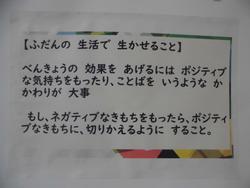 【ふだんの 生活で 生かせること】
べんきょうの 効果を あげるには ポジティブ
な気持ちをもったり、ことばを いうような か
かわりが 大事
もし、ネガティブなきもちをもったら、ポジティ
ブなきもちに、切りかえるように すること。